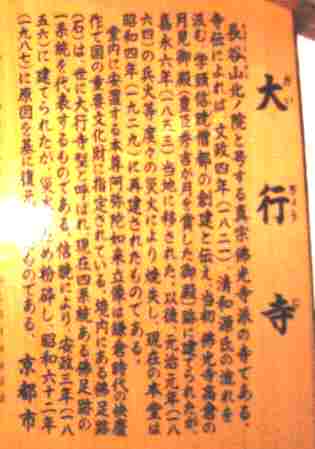 大行寺
だいぎょうじ
長谷山北ノ院と号する真宗佛光寺派の寺である。
寺伝によれば、文政四年(一八二一)清和源氏の流れを
汲む、学頭信暁僧都の創建と伝え、当初佛光寺高倉の
月見御殿(豊臣秀吉が月を賞した御殿)跡に建てられたが
嘉永六年(一八五三)当地に移された。以後、元治元年(一八
六四)の兵火等度々の災火により焼失し、現在の本堂は
昭和四年(一九二九)に再建されたものである。
堂内に安置する本尊阿弥陀如来立像は鎌倉時代の快慶
作で国の重要文化財に指定されている。境内にある佛足跡
(石)は、世に大行寺型と呼ばれ、現在四系統ある佛足跡の
一系統を代表するものである。信暁により、安政三年(一八
五六)に建てられたが、災火のため粉砕し、昭和六十二年
(一九八七)に原図を基に復元したものである。
京都市